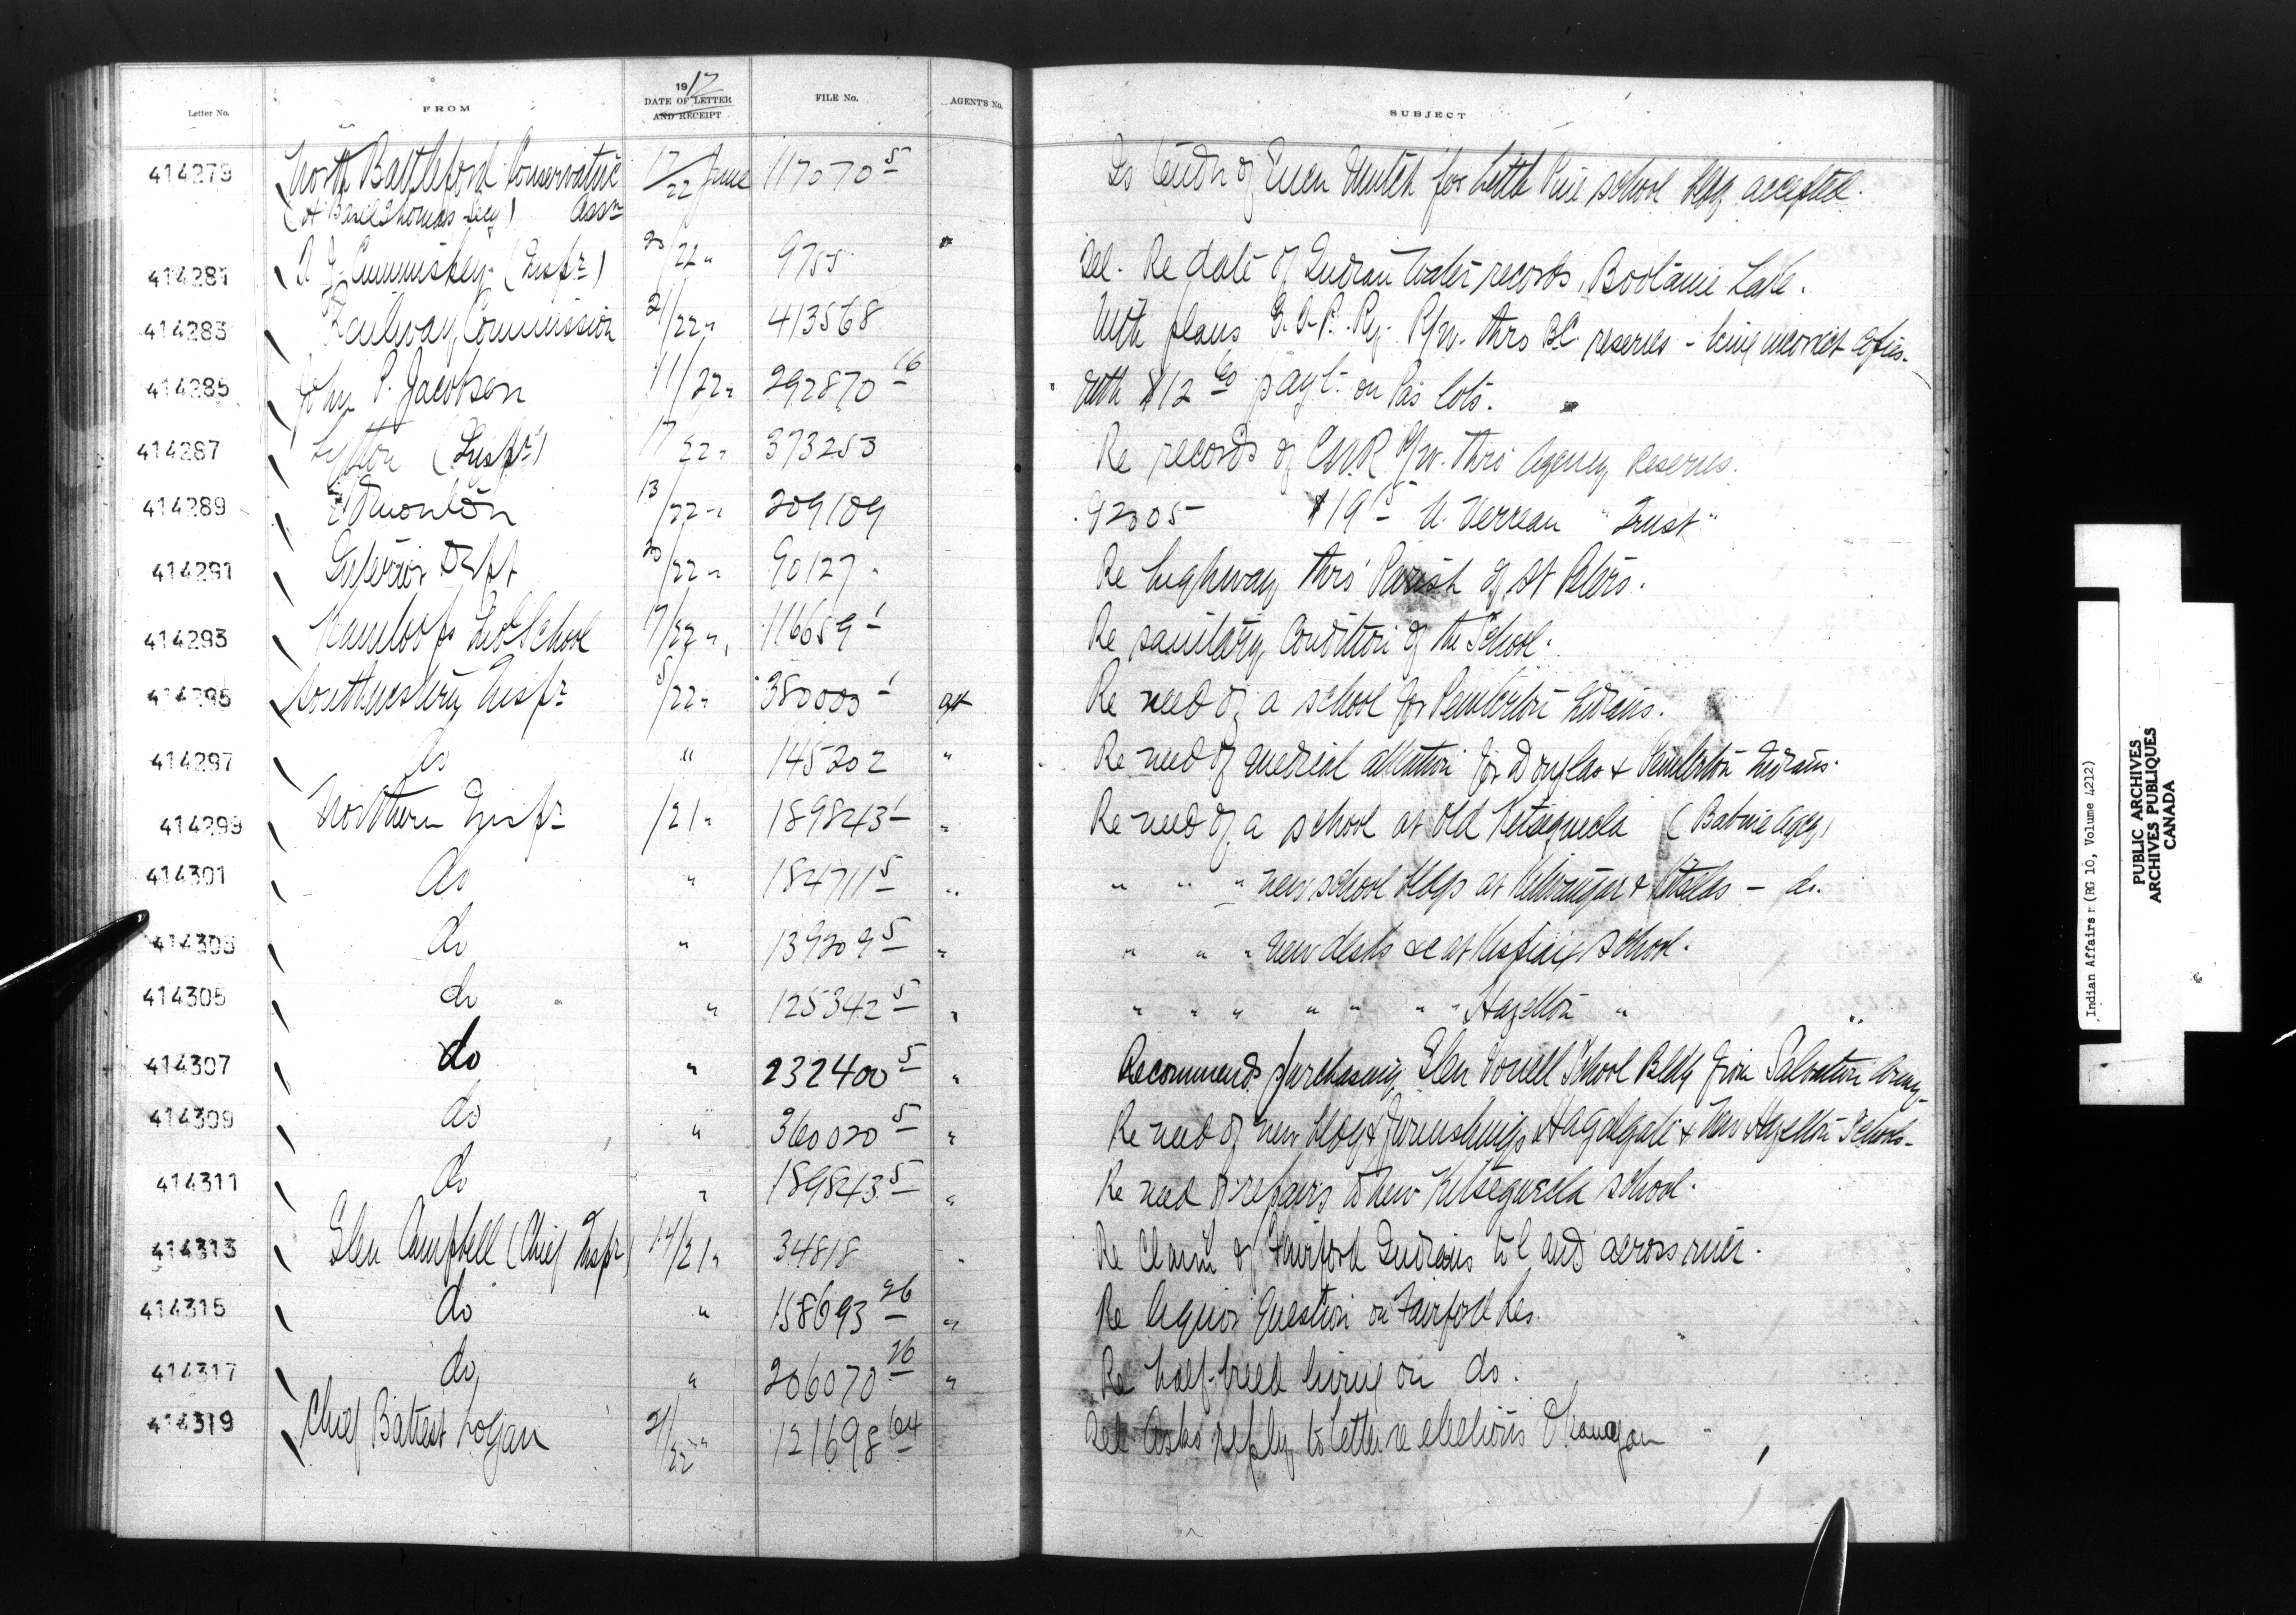 Letter No. FROM 1912 DATE OF LETTER AND RECEIPT FILE No. AGENT'S No. SUBJECT
414279 North Battleford Conservative 17/22 June 117070 5 Is tender of for Little Pine school bldg accepted.
(H Basil Thomas Secy) Assn
414281 (Inspr) 20/22 " 9755 Tel. Re date of Indian water records, Bootanie Lake.
414283 Railway Commission 21/22 " 413568 With plans G.T.P. Ry. R/w. thro B.C. reserves - being incorrect copies.
414285 John P. Jacobson 11/22 " 292870 16 With $12 payt. on Pas lots.
414287 Lytton (Inspr) 17/22 " 373253 Re records of CNR R/w. thro' Agency Reserves.
414289 Edmonton 13/22 " 209109 92005 $19 "Trust"
414291 Interior Dept 20/22 " 90127 Re highway thro' Parish of St Peters.
414293 Kamloops Ind School 17/22 " 116659 1 Re sanitary condition of the School.
414295 Southwestern Inspr 5/22 " 380000 1 Re need of a school for Pemberton Indians.
414297 do " 145202 " Re need of medical attention for Douglas & Pemberton Indians.
414299 Northern Inspr /21 " 189843 1 " Re need of a school at Old Kitseguecla (Babine Agcy)
414301 do " 184711 5 " " " " new school bldgs at & Kitselas - do.
414303 do " 139209 5 " " " " new desks &c at Kispiax school.
414305 do " 125342 5 " " " " " " " " Hazelton "
414307 do " 232400 5 " Recommends purchasing Glen Vowell School Bldg from Salvation Army.
414309 do " 360020 5 " Re need of new bldg & furnishings & New Hazelton Schools.
414311 do " 189843 5 " Re need of repairs to new Kitseguecla school.
414313 Glen Campbell (Chief Inspr) 14/21 " 34818 " Re claim of Fairford Indians to land across river.
414315 do " 158693 26 " Re liquor question on Fairford Res.
414317 do " 206070 26 " Re half-breed living on do.
414319 Chief Battest Logan 21/22 " 121698 64 Tel. Asks reply to letter re elections Okanagan
Indian Affairs (RG 10, Volume 4212)
PUBLIC ARCHIVES
ARCHIVES PUBLIQUES
CANADA